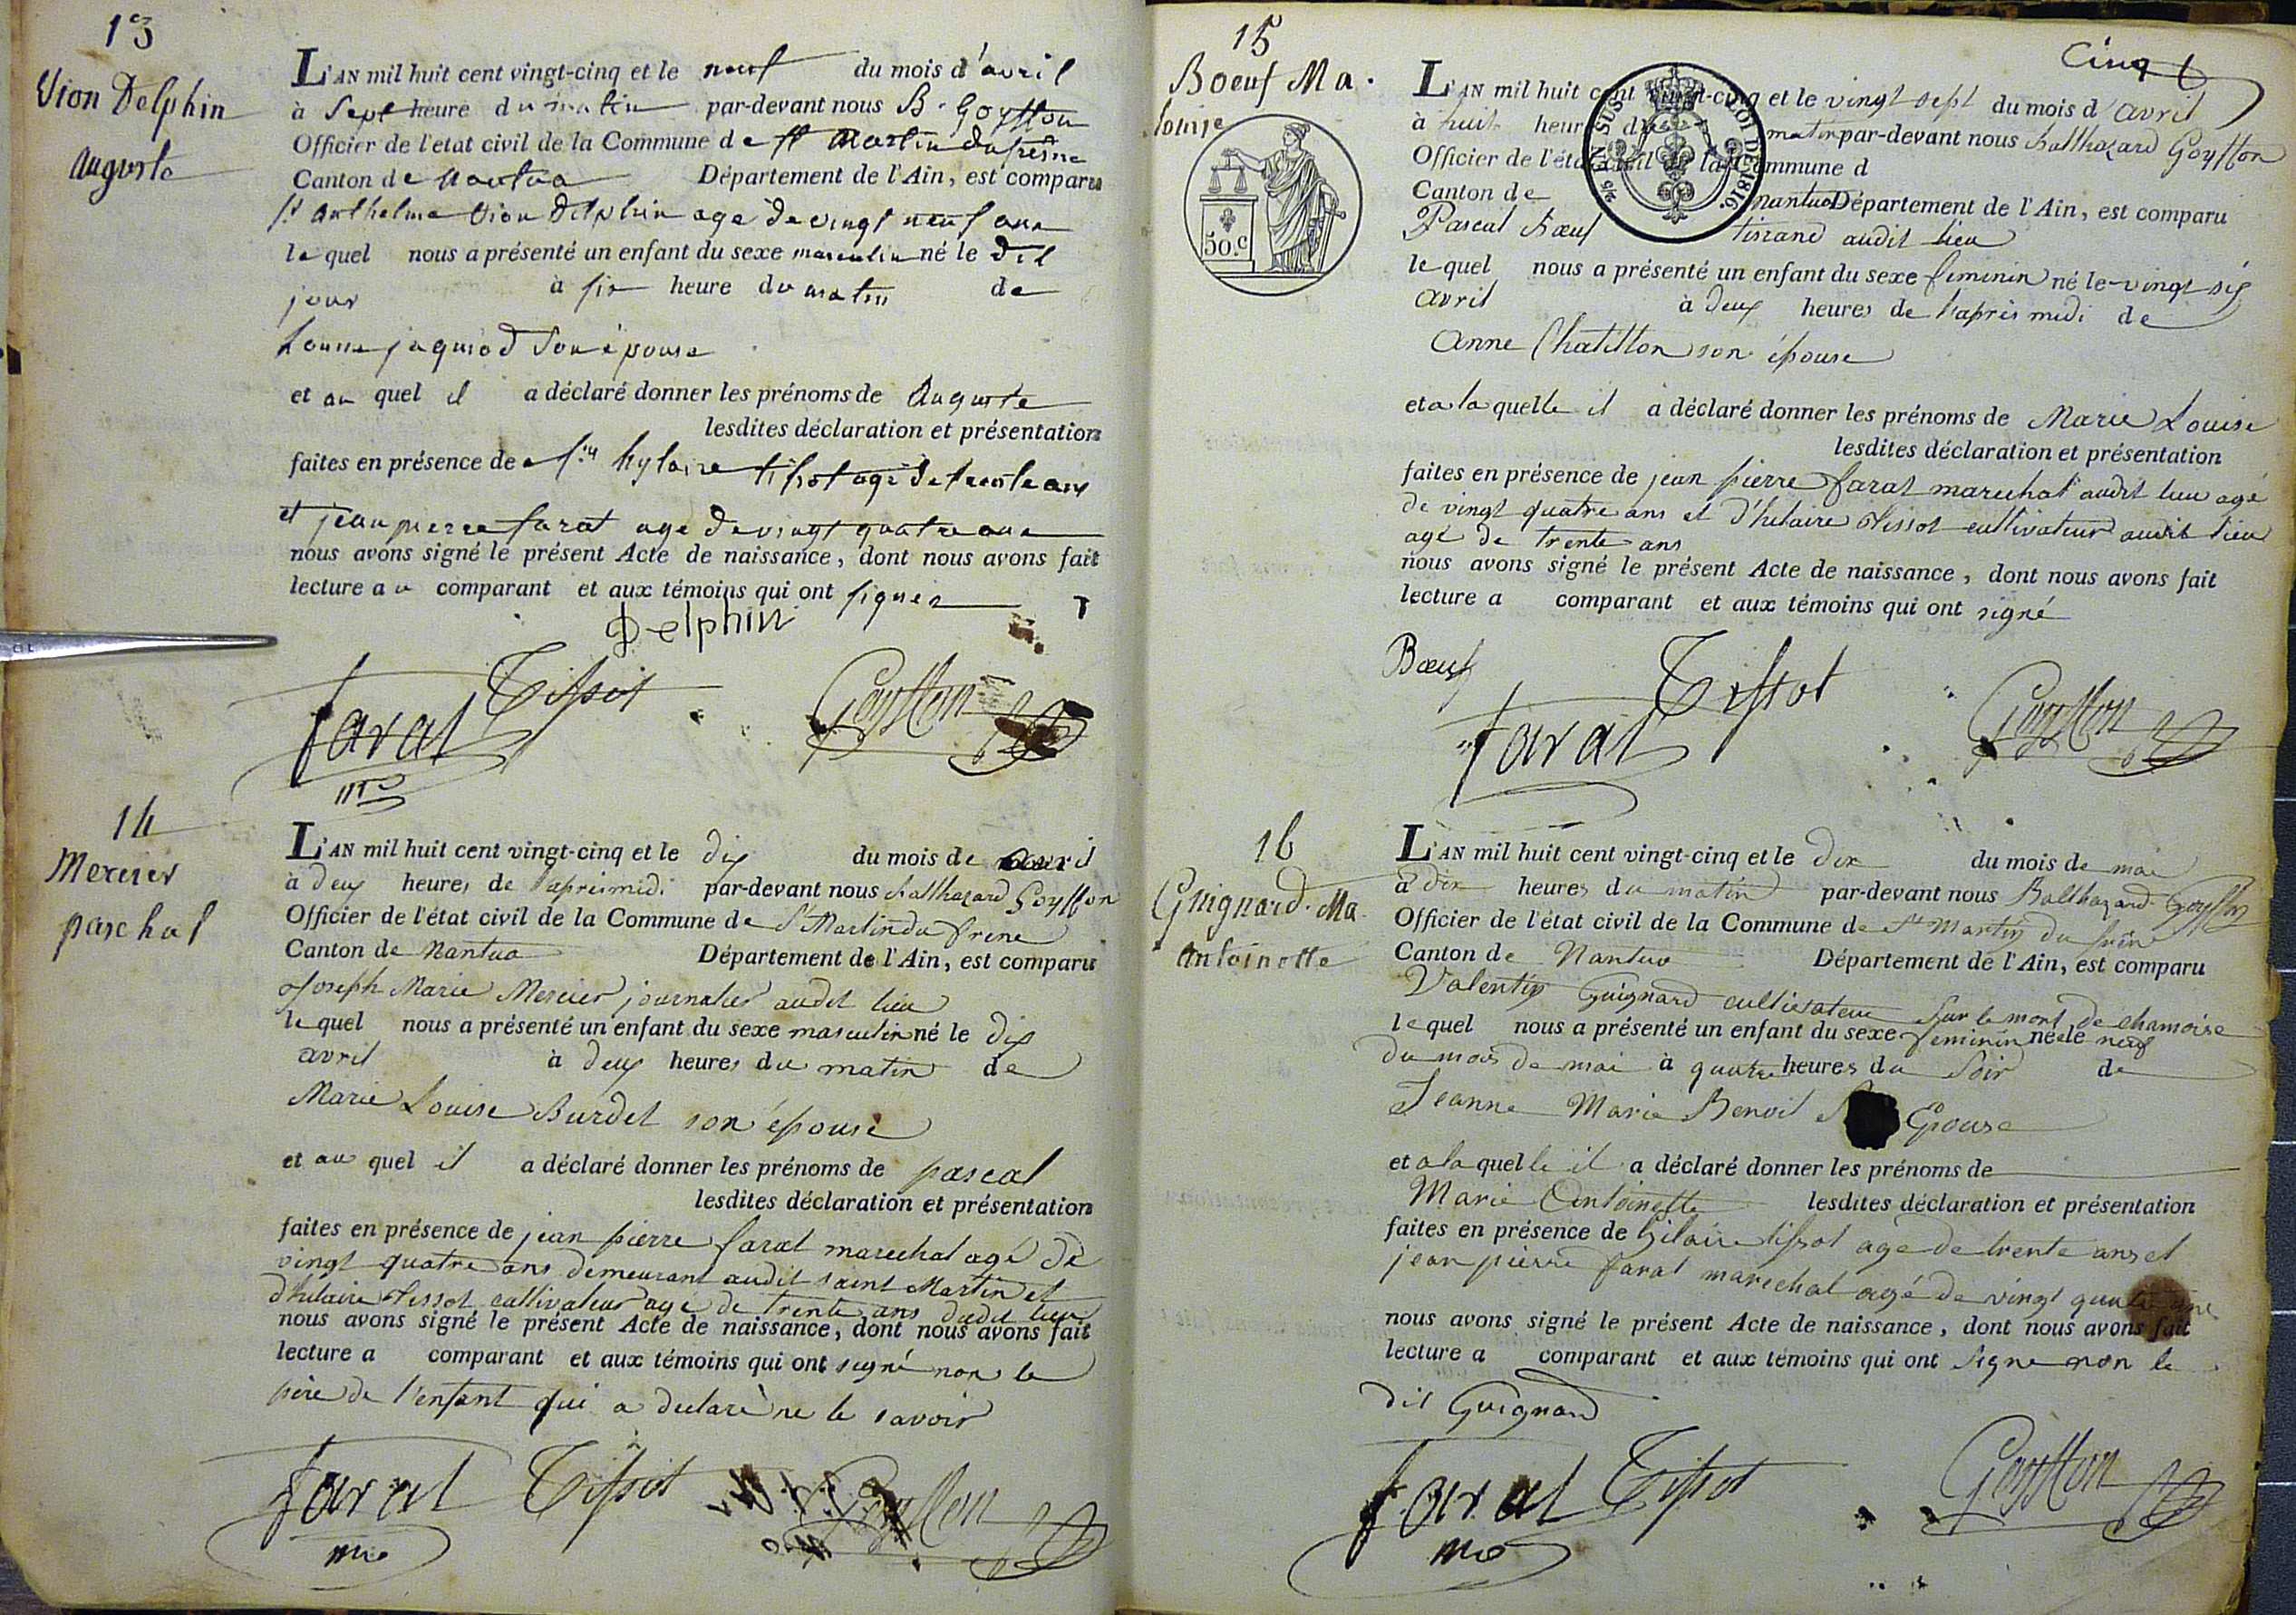 13
Vion Delphin
Auguste
L'AN mil huit cent vingt-cinq et le neuf du mois d'avril
à Sept heure du matin par-devant nous B. Goyffon
Officier de l'etat civil de la Commune de St Martin du fresne
Canton de Nantua Département de l'Ain, est comparu
Sr Anthelme Vion Delphin age de vingt neuf ans
le quel nous a présenté un enfant du sexe masculin né le dit
jour à six heure du matin de
Louise jaquiod Son épouse
et au quel il a déclaré donner les prénoms de Auguste
lesdites déclaration et présentation
faites en présence de hylaire tissot agé de trente ans
et jean pierre farat age de vingt quatre ans
nous avons signé le présent Acte de naissance, dont nous avons fait
lecture au comparant et aux témoins qui ont signer
Delphin
Tissot
farat Goyffon
14
Mercier
paschal
L'AN mil huit cent vingt-cinq et le dix du mois de avril
à deux heures de l'aprismidi par-devant nous Balthazard Goyffon
Officier de l'état civil de la Commune de St Martin du frene
Canton de Nantua Département de l'Ain, est comparu
Joseph Marie Mercier journalier audit lieu
le quel nous a présenté un enfant du sexe masculin né le dix
avril à deux heures du matin de
Marie Louise Burdet son épouse
et au quel il a déclaré donner les prénoms de pascal
lesdites déclaration et présentation
faites en présence de jean pierre farat marechal agé de
vingt quatre ans demeurant audit saint Martin et
d'hilaire Tissot cultivateur age de trente ans dudit lieu
nous avons signé le présent Acte de naissance, dont nous avons fait
lecture a comparant et aux témoins qui ont signé non le
père de l'enfant qui a declaré ne le savoir
farat Tissot Goyffon
15
Boeuf Ma.
louise
cinq
L'AN mil huit cent vingt-cinq et le vingt sept du mois d'avril
à huit heure du matin par-devant nous Balthazard Goyffon
Officier de l'état civil de la Commune d
Canton de nantua Département de l'Ain, est comparu
Pascal Bœuf tisrand audit lieu
le quel nous a présenté un enfant du sexe feminin né le vingt six
avril à deux heures de l'apris midi de
Anne Chatillon son épouse
et a la quelle il a déclaré donner les prénoms de Marie Louise
lesdites déclaration et présentation
faites en présence de jean pierre farat marechal audit lieu agé
de vingt quatre ans et d'hilaire Tissot cultivateur audit lieu
agé de trente ans
nous avons signé le présent Acte de naissance, dont nous avons fait
lecture a comparant et aux témoins qui ont signé
Bœuf Tissot
farat Goyffon
50.c
EN SUS
LOI DE 1816.
16
Guignard. Ma
Antoinette
L'AN mil huit cent vingt-cinq et le dix du mois de mai
à dix heures du matin par-devant nous Balthazard Goyffon
Officier de l'état civil de la Commune de St Martin du frêne
Canton de Nantua Département de l'Ain, est comparu
Valentin Guignard cultivateur sur le mont de chamoise
le quel nous a présenté un enfant du sexe feminin né le neuf
du mois de mai à quatre heures du Soir de
Jeanne Marie Benoit Epouse
et a la quelle il a déclaré donner les prénoms de
Marie Antoinette lesdites déclaration et présentation
faites en présence de hilaire tissot age de trente ans et
jean pierre farat marechal agé de vingt quatre ans
nous avons signé le présent Acte de naissance, dont nous avons fait
lecture a comparant et aux témoins qui ont signe non le
dit Guignard
farat Tissot Goyffon